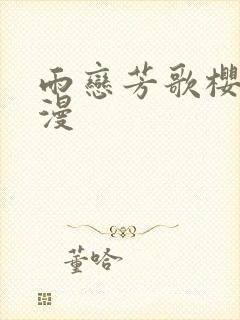 雨戀芳歌櫻
漫
董哈